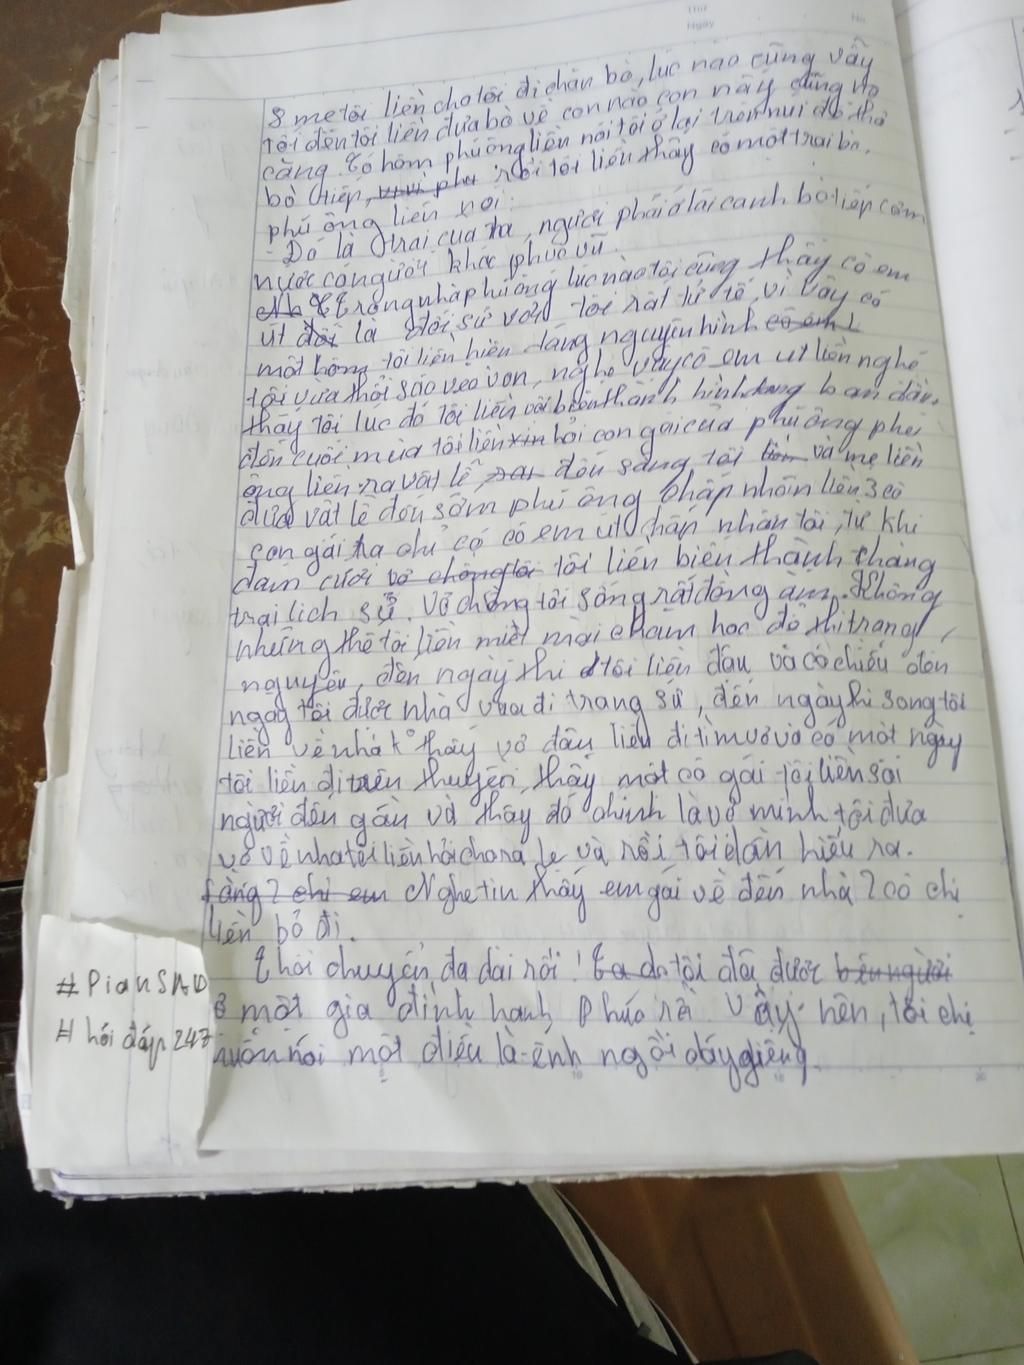 Thứ
Ngày
No
8 mẹ tôi liền cho tôi đi chăn bò, lúc nào cũng vậy
tôi đến tôi liền đưa bò về con nào con nấy cũng no
căng. Có hôm phú ông liền nói tôi ở lại trên núi để thả
bò tiếp, rồi tôi liền thấy có một trai bò.
phú ông liền nói:
- Đó là trai của ta, người phải ở lại canh bò tiếp cơm
nước có người khác phục vụ.
Trong nhà phú ông lúc nào tôi cũng thấy cô em
út đối là đối sử với tôi rất tử tế, vì vậy có
một hôm tôi liền hiện dáng nguyên hình cô em
tôi vừa thổi sáo véo von, nghe vậy cô em út liền nghé
thấy tôi lúc đó tôi liền vội biến thành hình dạng ban đầu,
đến cuối mùa tôi liền xin hỏi con gái của phú ông phú
ông liền ra vật lễ đến sáng tôi liền và mẹ liền
đưa vật lễ đến sớm phú ông chấp nhận liền 3 cô
con gái ra chỉ có cô em út chấp nhận tôi, từ khi
đám cưới vợ chồng tôi tôi liền biến thành chàng
trai lịch sự. Vợ chồng tôi sống rất đồng àm. Không
những thế tôi liền miệt mài chăm học đỗ thi trạng
nguyên, đến ngày thi tôi liền đậu và có chiếu đến
ngay tôi được nhà vua đi trang sứ, đến ngày thi song tôi
liền về nhà k° thấy vợ đâu liền đi tìm vợ và có một ngày
tôi liền đi trên thuyền, thấy một cô gái tôi liền sai
người đến gần và thấy đó chính là vợ mình tôi đưa
vợ về nhà tôi liền hỏi cho ra lẽ và rồi tôi dần hiểu ra.
2 chị em Nghe tin thấy em gái về đến nhà 2 cô chị
liền bỏ đi.
Thôi chuyện đã dài rồi! tôi đã được bên người
ở một gia đình hạnh phúc rồi vậy nên, tôi chị
muốn nói một điều là ếnh ngồi đáy giếng.
#PianSND
# hỏi đáp 247